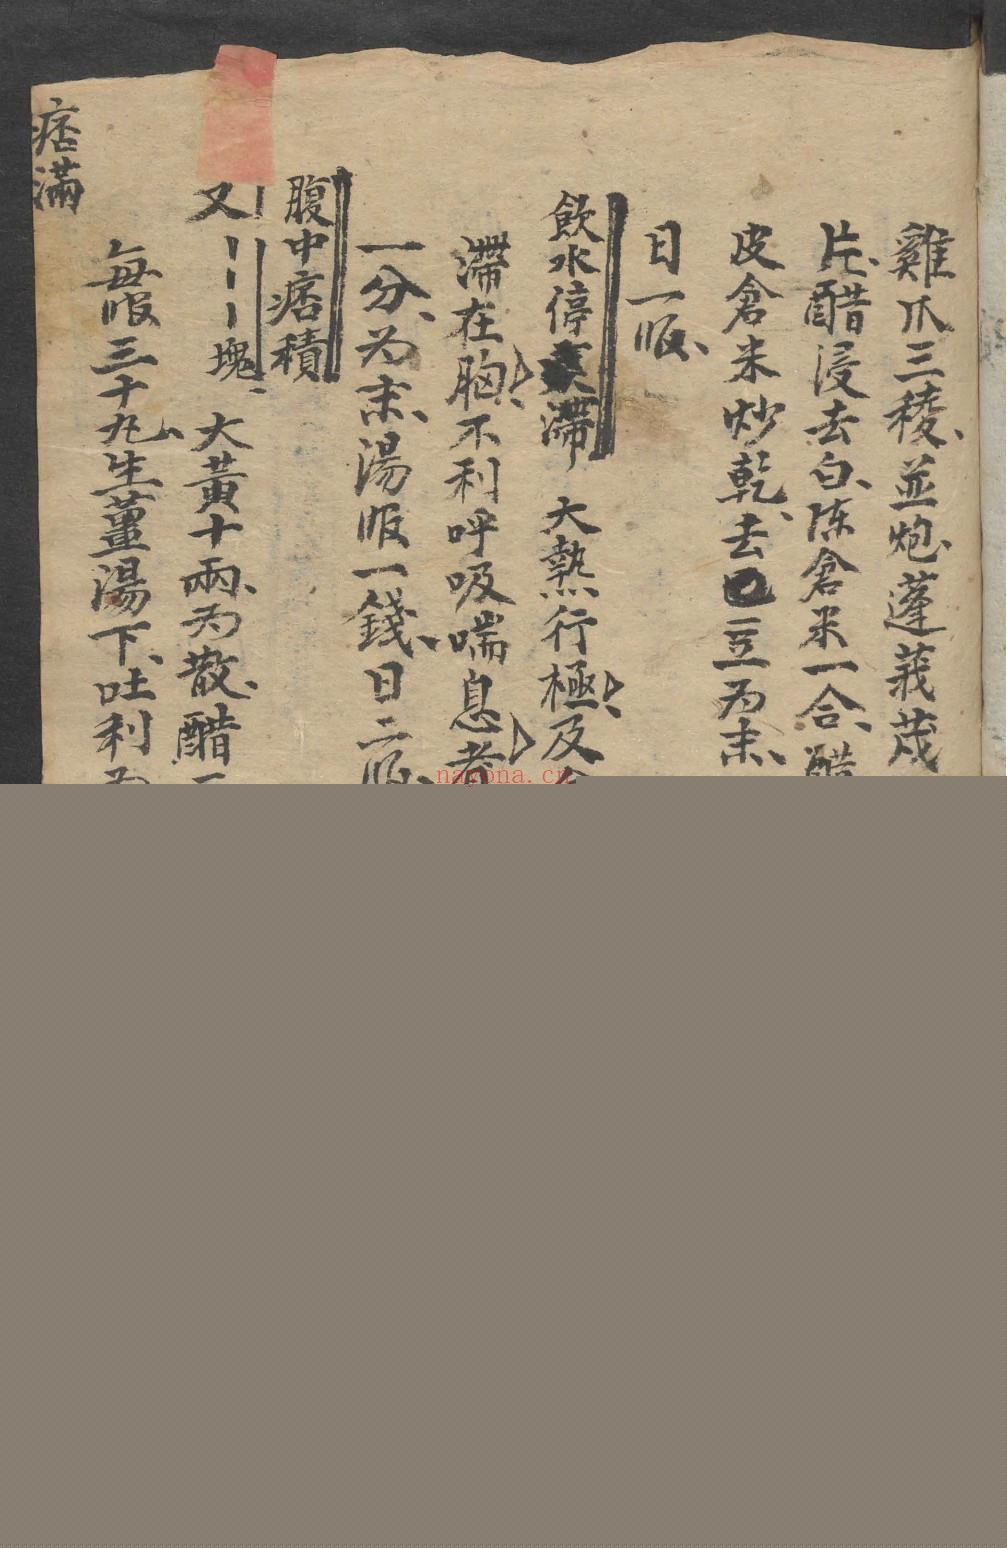 雞爪三稜、並炮、蓬莪茂
片、醋浸去白、陈倉米一合、醋
皮倉米炒乾、去巴豆为末、
日一服、
飲水停滞 大熱行極、及
滯在胸、不利呼吸喘息者
一分、为末、湯服一錢、日二服、
腹中痞積
又〡〡〡塊、大黃十兩、为散、醋
每服三十丸、生薑湯下、吐利
痞滿
nayona.cn